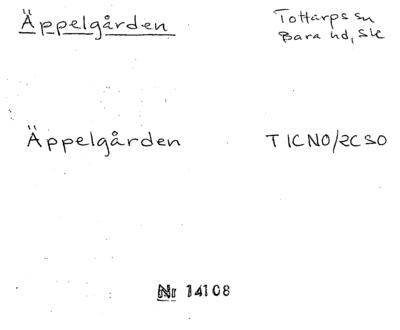 Äppelgården
Tottarps sn
Bara hd, Sk
Äppelgården
T 1CNO/2CSO
Nr 14108